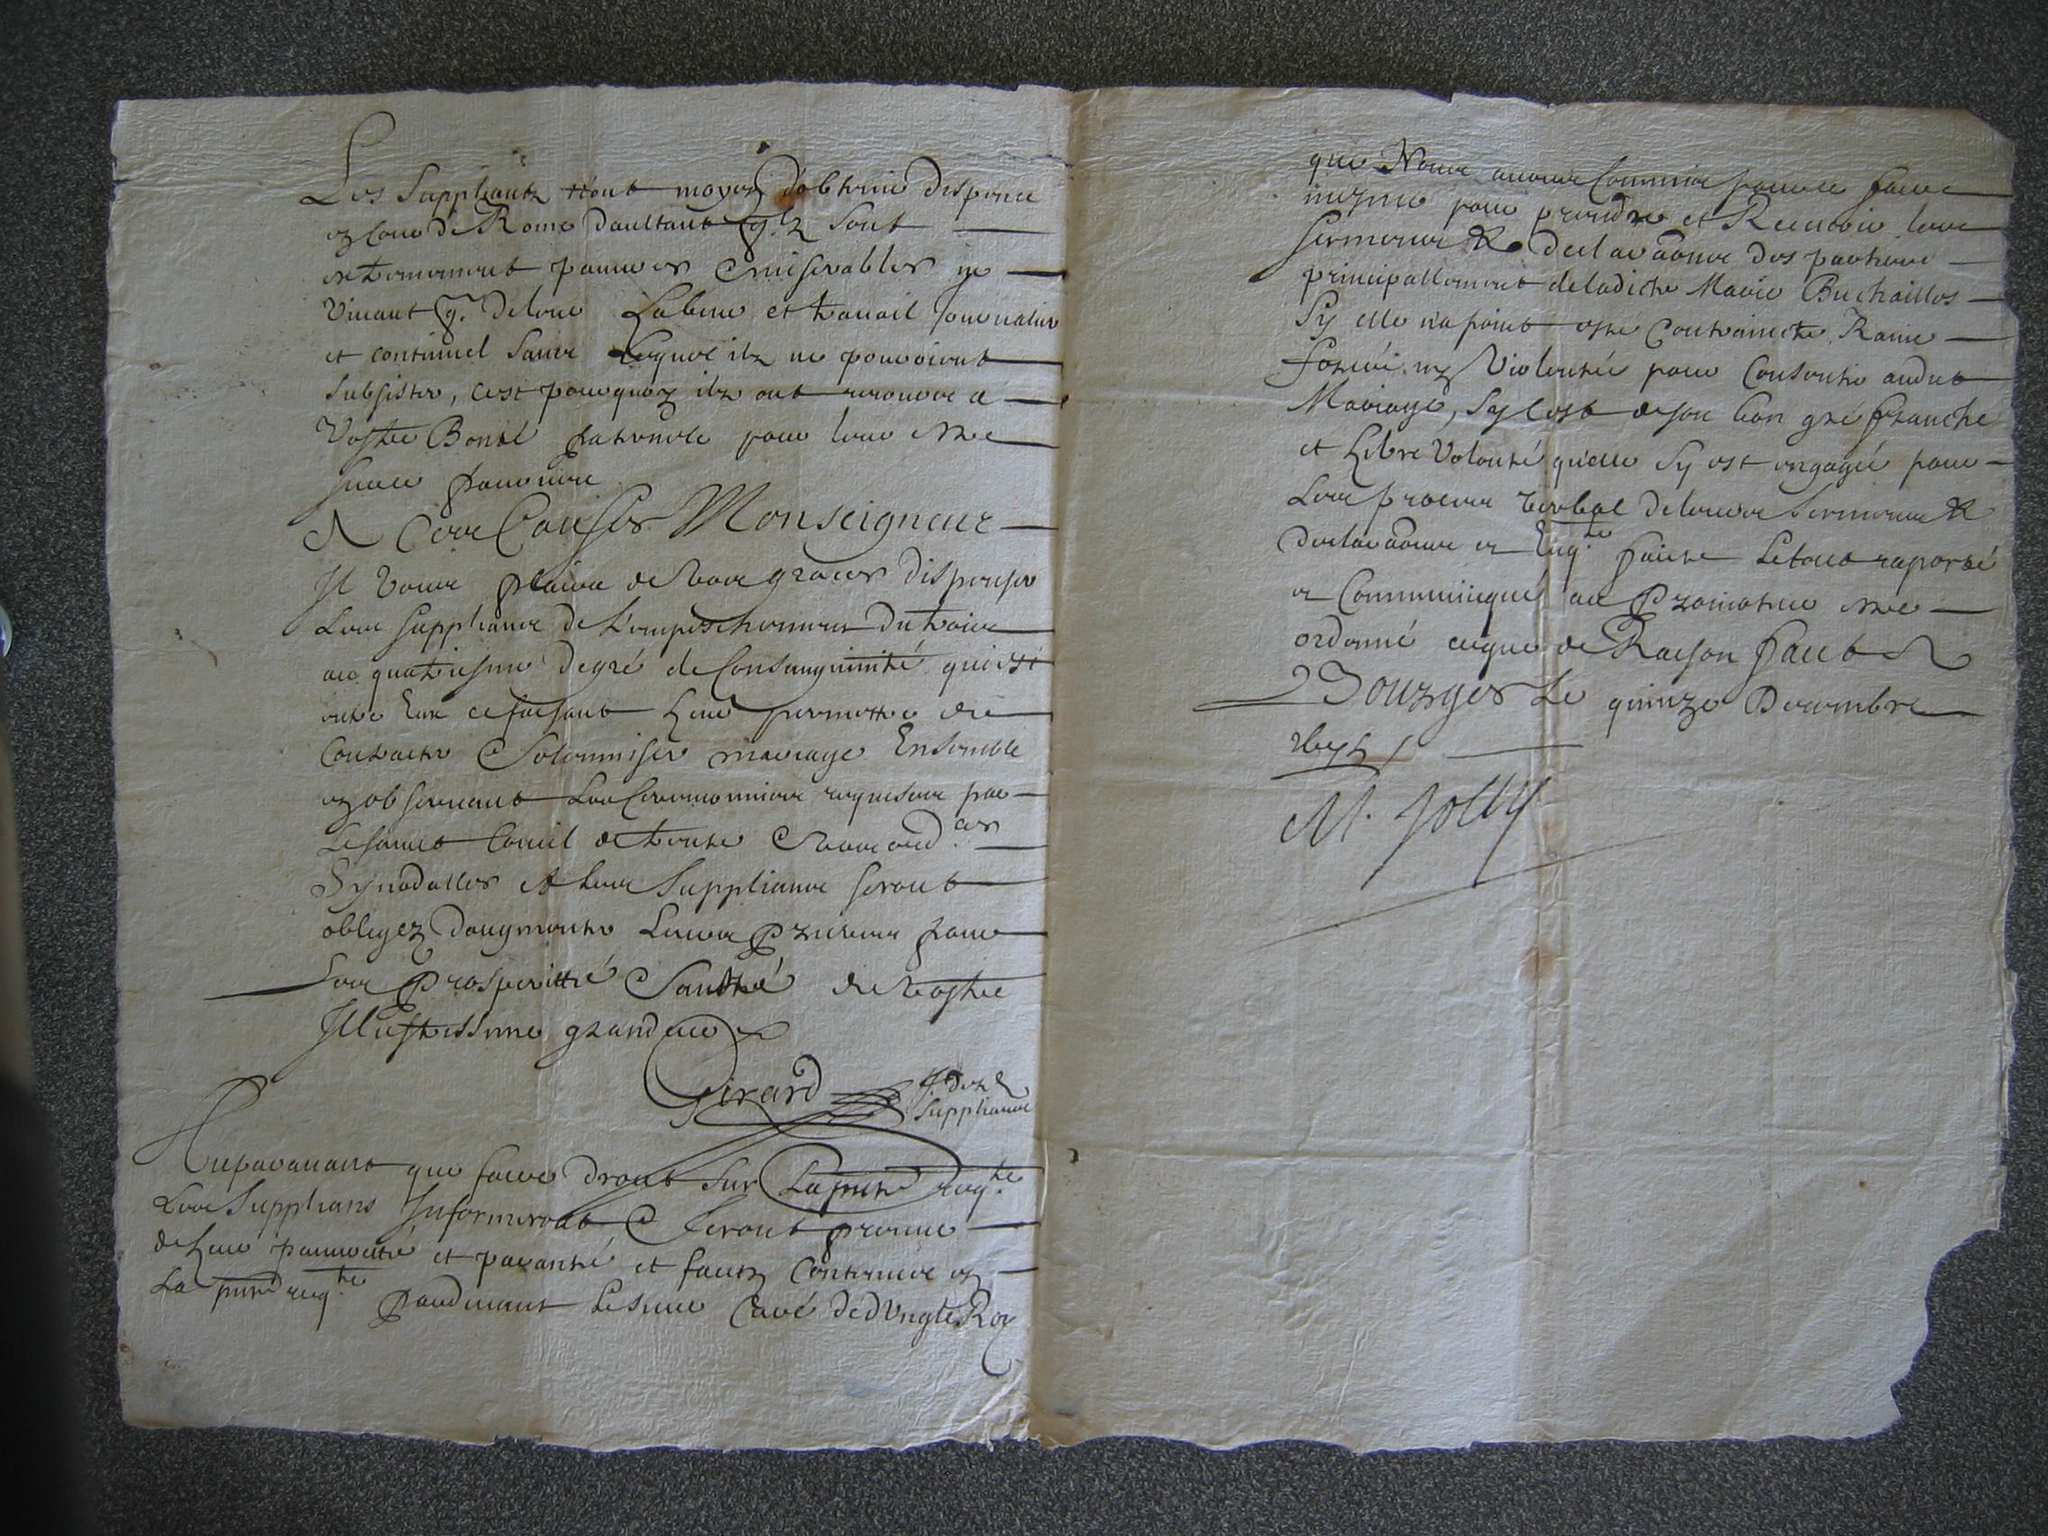 Les Suppliantz n'ont moyen d'obtenir dispence
en Cour de Rome daultant q.lz sont
extremement pauures & miserables ne
Viuant q. de leur Labeur et trauail journalier
et continuel sans Lequel ilz ne pouroient
subsister, c'est pourquoy ilz ont recours a
Vostre Bonté paternele pour leur estre
sur ce pourueu
A Ces Causes Monseigneur
Il Vous plaise de Vos graces dispenser
Les supplians de L'empeschement du trois
au quatriesme degré de Consanguinité qui est
entre Eux ce faisant Leur permettre de
Contracter & Solemniser mariage Ensemble
en obseruant Les Ceremonnies requises par
Le sainct Concil de trente & vos ord.ces
Synodalles et Les Supplians seront
obligez d'augmenter Leurs Prieres pour
Les Prosperitté & Santté de Vostre
Illustrissime grandeur
Girard p. des.
Supplians
Auparauant que faire droit sur La pnte req.te
Les Supplians Informeront & feront preuue
de Leur pauureté et paranté et faictz Contenus en
La pnte req.te Pardeuant Le sieur Curé de d'Vngle Roy
que Nous auons Commis pour ce faire
mesme pour prendre et Receuoir leurs
sermens & declarations des parties
principallement de ladicte Marie Buchailles
Sy elle n'a point esté Contraincte Rauie
forcée ny Violentée pour Consentir audict
Mariage, sy c'est de son bon gré franche
et Libre Volonté qu'elle sy est engagée pour
Les proces verbal de leurs sermens &
declarations et Enq.te faicte Le tout raporté
et Communiqué au Promoteur estre
ordonné ce que de Raison Faict
A Bourges Le quinze Decembre
M. Jolly